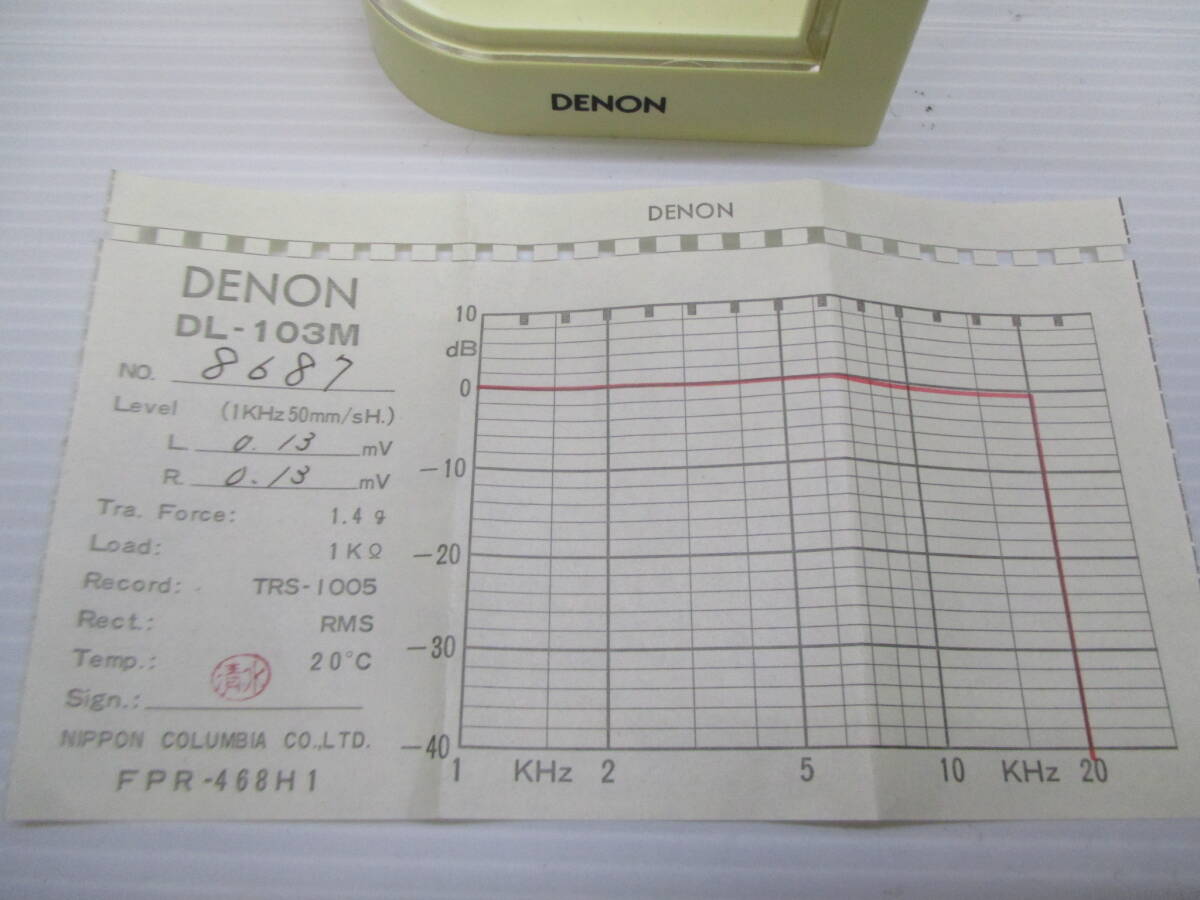 DENON
DENON
DENON
DL-103M
NO. 8687
Level (1KHz 50mm/sH.)
L 0.13 mV
R 0.13 mV
Tra. Force: 1.4 g
Load: 1KΩ
Record: TRS-1005
Rect.: RMS
Temp.: 20°C
Sign.: 清水
NIPPON COLUMBIA CO.,LTD.
FPR-468H1
10
dB
0
-10
-20
-30
-40
1 KHz 2 5 10 KHz 20